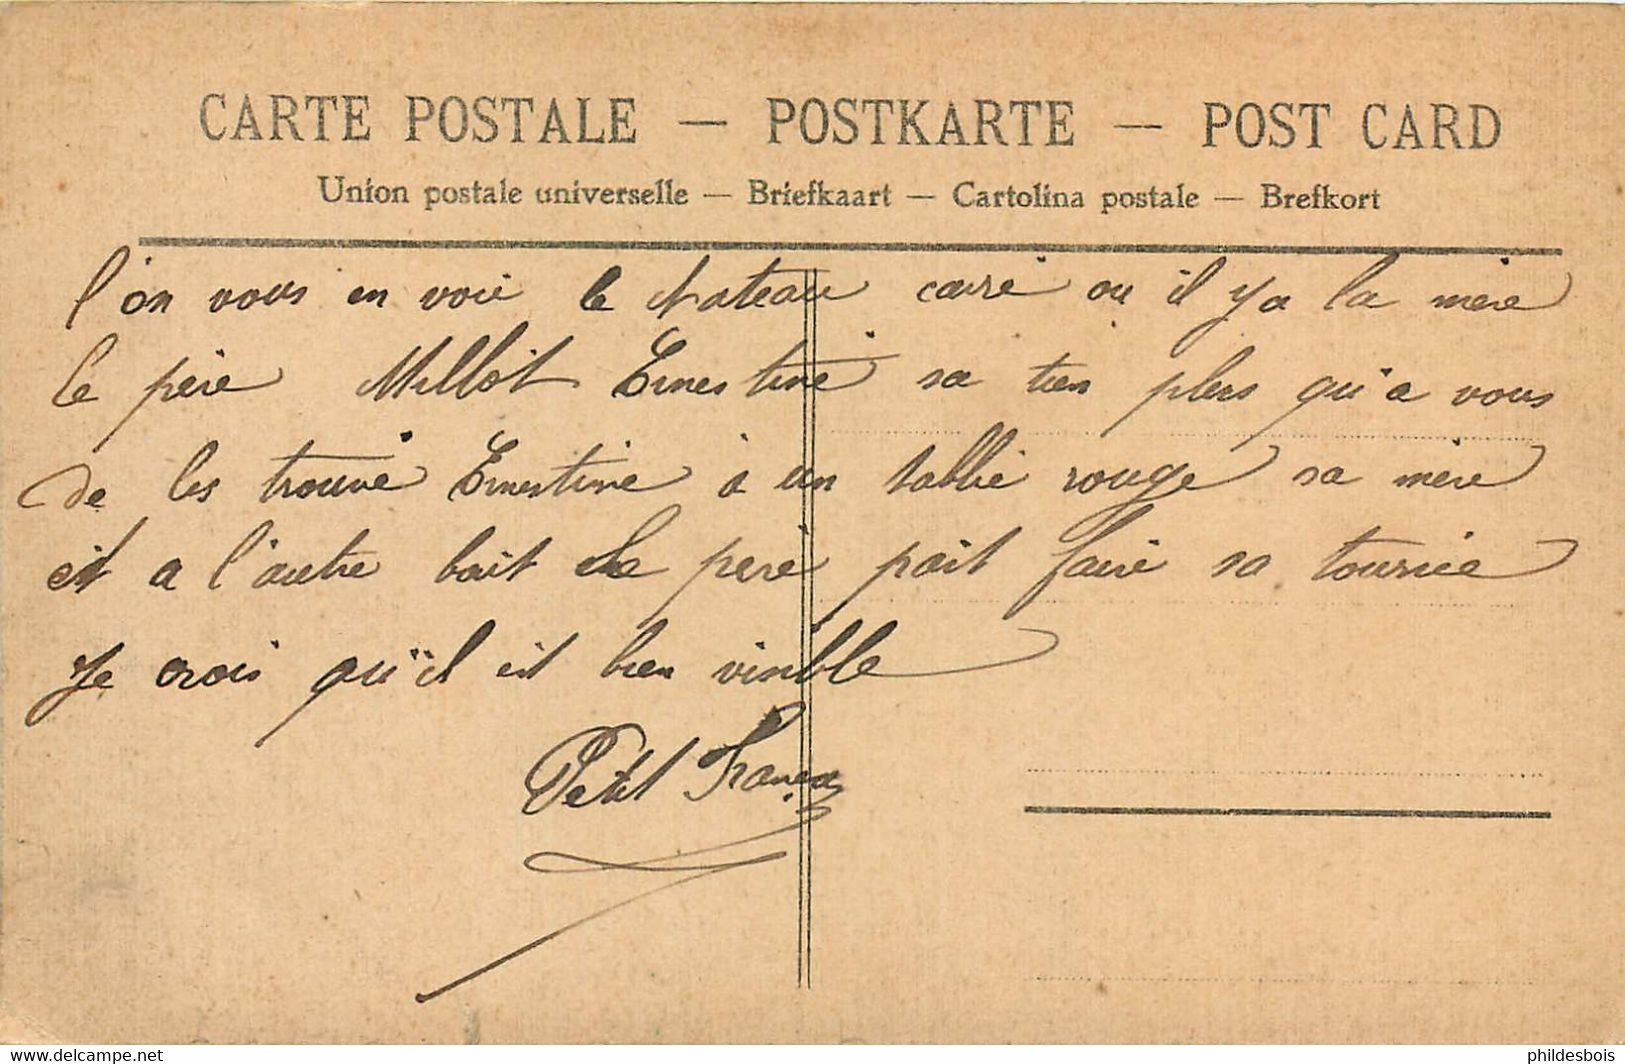 CARTE POSTALE — POSTKARTE — POST CARD
Union postale universelle — Briefkaart — Cartolina postale — Brefkort
l'on vous en voie le chateau carré ou il y a la mère
le père Millot Ernestine sa tien plus qu'a vous
de les trouvé Ernestine à un tablié rouge sa mère
est a l'autre bout le père pait faire sa tournée
Je crois qu'il est bien visible
Petit
www.delcampe.net
phildesbois